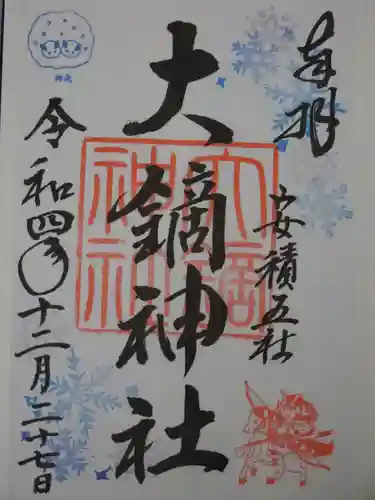 奉拝
安積五社
大鏑神社
大鏑神社
令和四年十二月二十七日